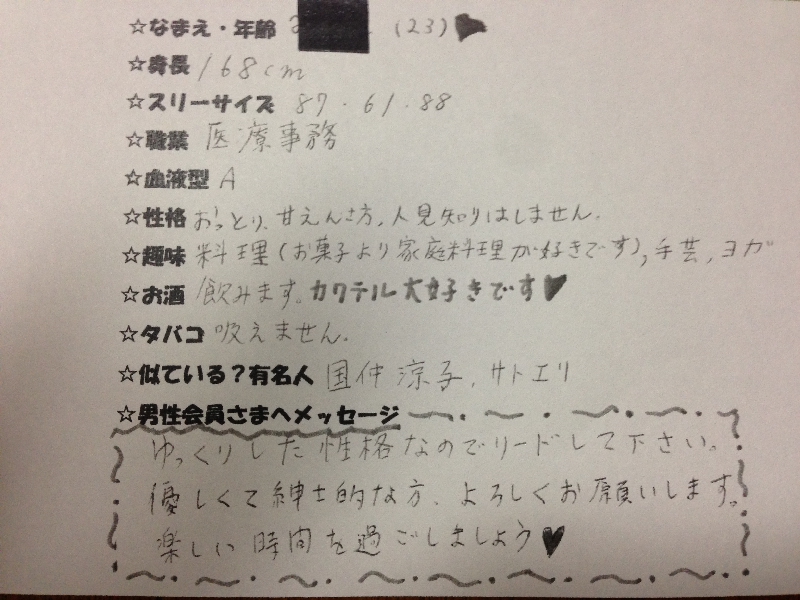 ☆なまえ・年齢 (23)
☆身長 168cm
☆スリーサイズ 87・61・88
☆職業 医療事務
☆血液型 A
☆性格 おっとり、甘えん坊、人見知りはしません.
☆趣味 料理(お菓子より家庭料理が好きです)、手芸、ヨガ
☆お酒 飲みます。カクテル大好きです♥
☆タバコ 吸えません.
☆似ている?有名人 国仲涼子、サトエリ
☆男性会員さまへメッセージ
ゆっくりした性格なのでリードして下さい。
優しくて紳士的な方、よろしくお願いします。
楽しい時間を過ごしましょう♥